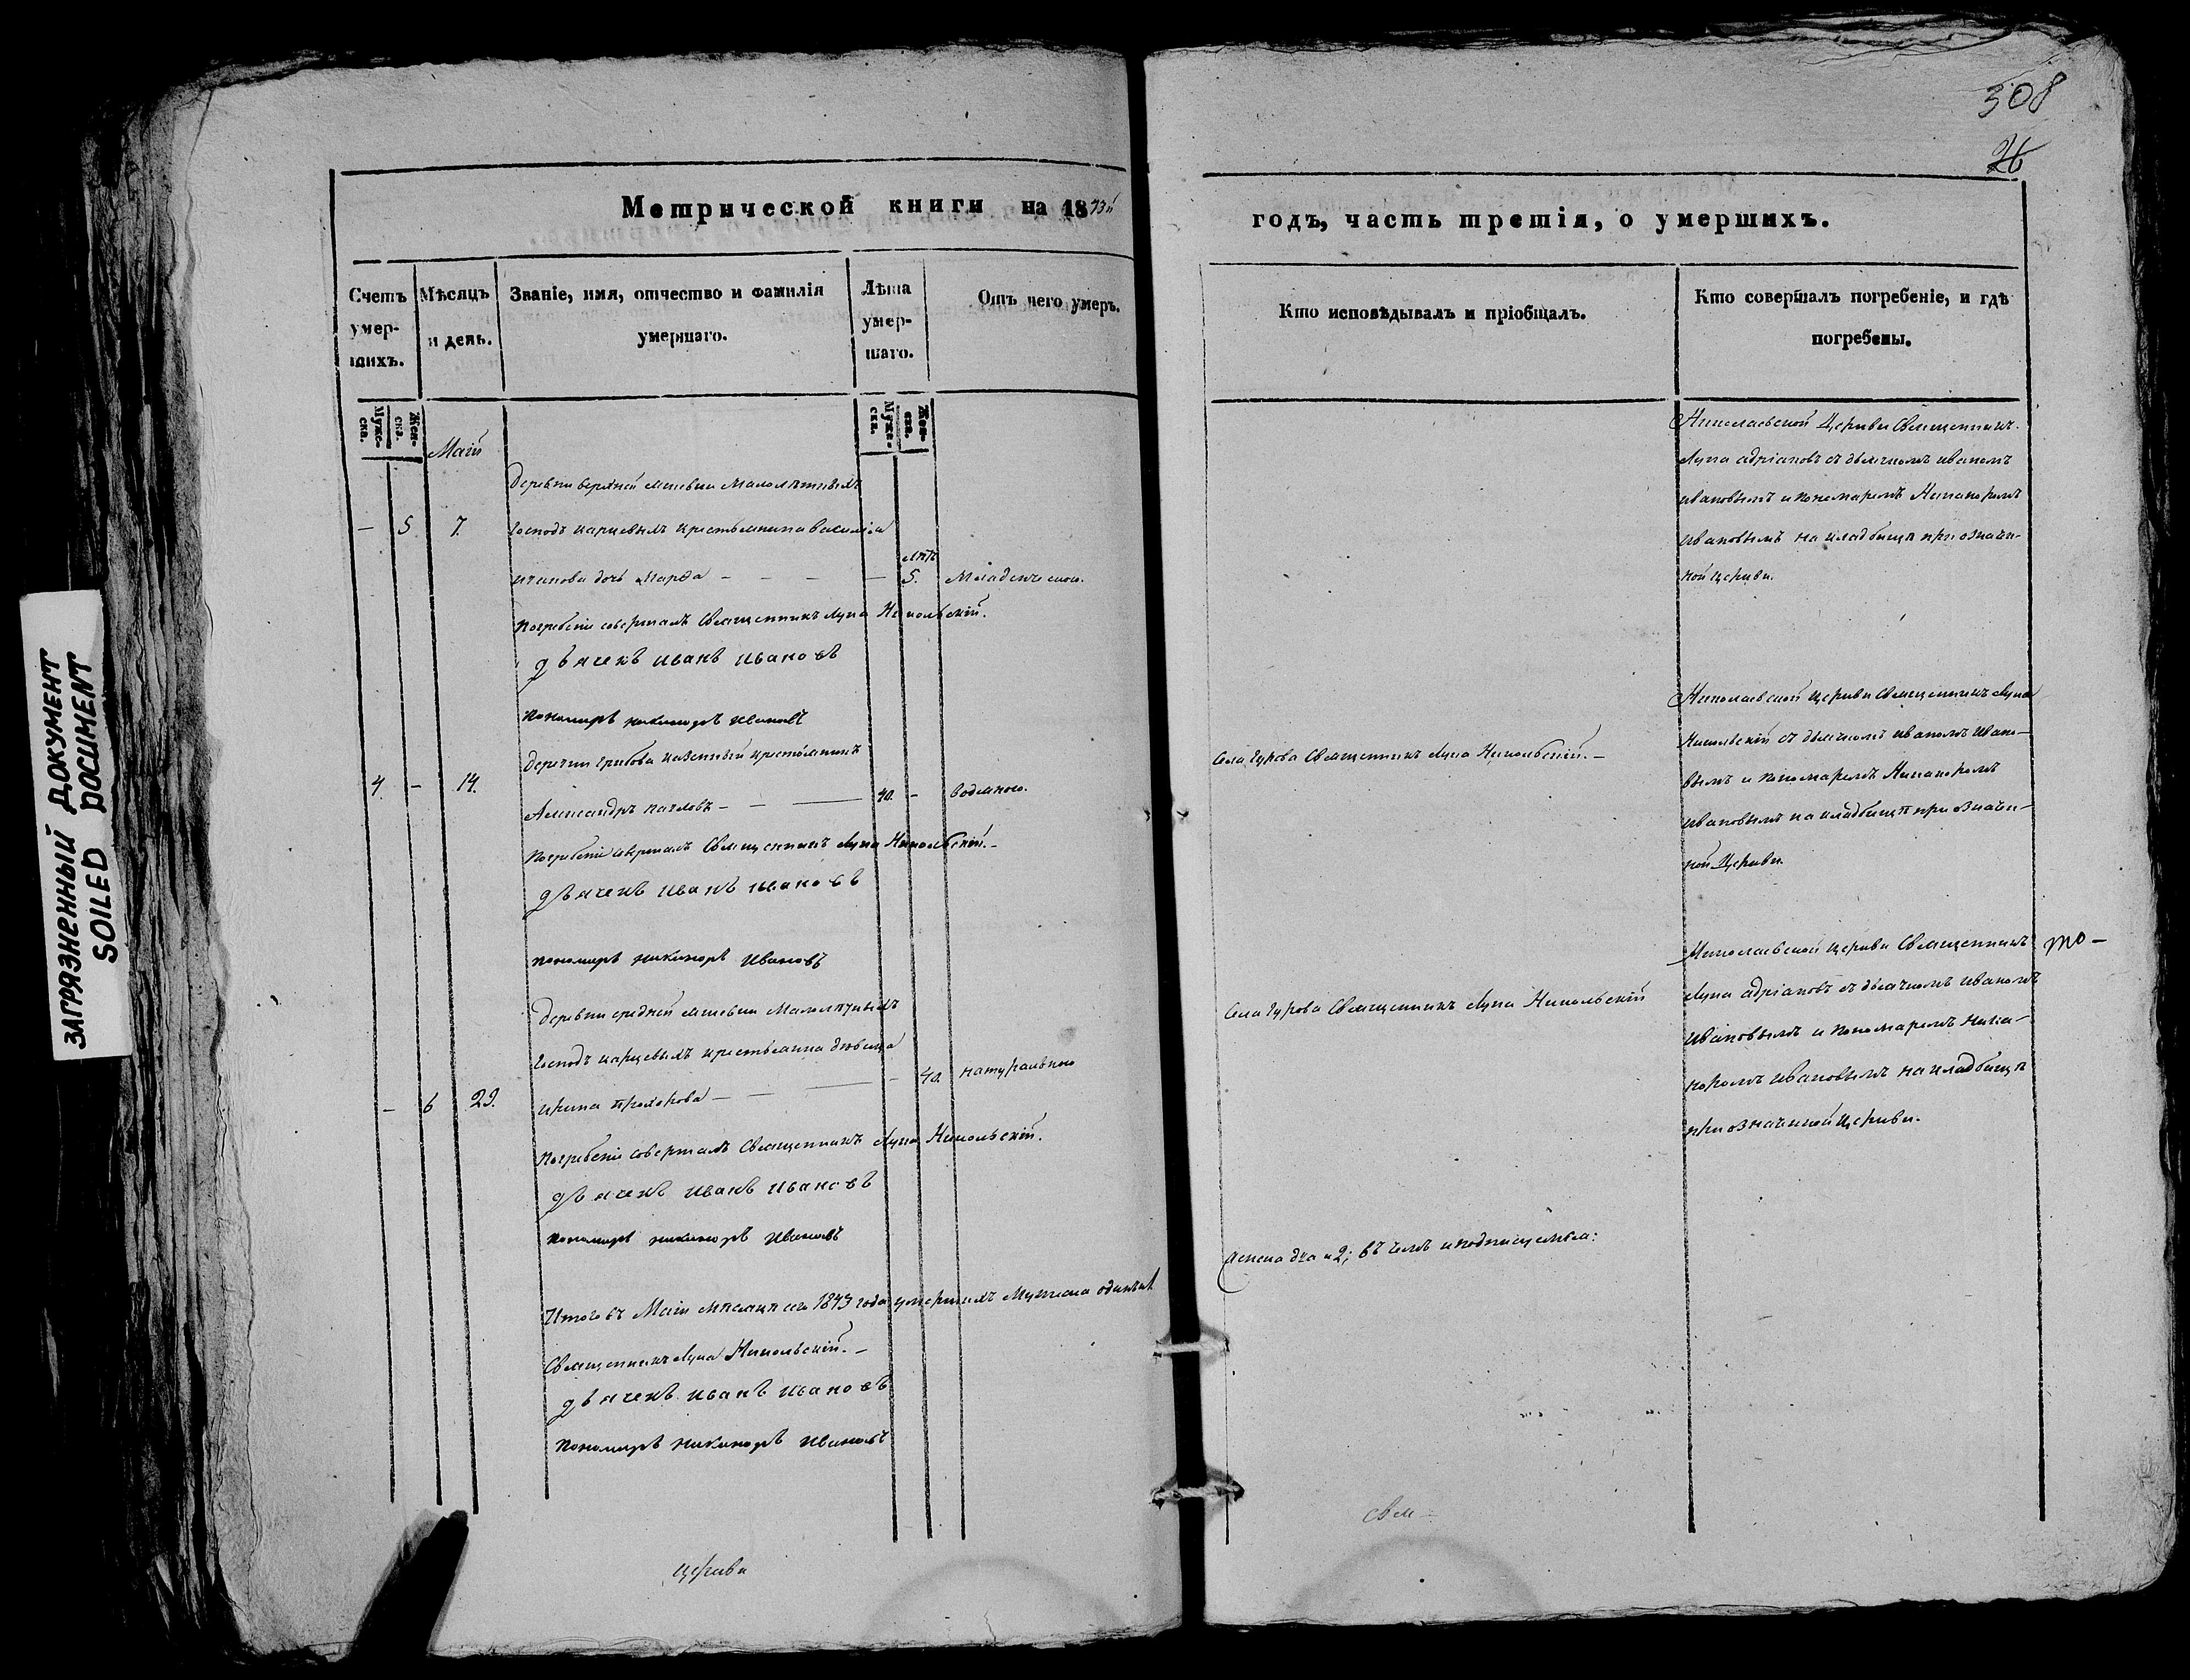 308
26
ЗАГРЯЗНЕННЫЙ ДОКУМЕНТ
SOILED DOCUMENT
Метрической книги на 1843й
годъ, часть третія, о умершихъ.
Счетъ умер-
шихъ.
Мѣсяцъ
и день.
Званіе, имя, отчество и фамилія
умершаго.
Лѣта
умер-
шаго.
Отъ чего умеръ.
Кто исповѣдывалъ и пріобщалъ.
Кто совершалъ погребеніе, и гдѣ
погребены.
Мужс-
ска.
Жен-
ска.
Мужс-
ска.
Жен-
ска.
Маій
Деревни верхней Малолѣтныхъ
— 5 7. Господъ крестьянина Василія
дочь Марѳа — — — — лѣтъ 5. Младенческою.
Погребеніе совершалъ Священникъ Лупа Никольскій.
дьячекъ иванъ ивановъ
пономарь никаноръ ивановъ
Николаевской Церкви Священникъ
Лупа адріановъ съ дьячкомъ иваномъ
ивановымъ и пономаремъ Никаноромъ
ивановымъ на кладбищѣ при означен-
ной церкви.
деревни Грибова казенный крестьянинъ
4. — 14. Александръ павловъ — — — 40. — водяною.
Погребеніе совершалъ Священникъ Лупа Никольскій. —
дьячекъ иванъ ивановъ
пономарь никаноръ ивановъ
Села Гурова Священникъ Лупа Никольскій. —
Николаевской Церкви Священникъ Лупа
Никольскій съ дьячкомъ иваномъ Ивано-
вымъ и пономаремъ Никаноромъ
ивановымъ на кладбищѣ при означен-
ной Церкви.
деревни средней Малолѣтныхъ
Господъ крестьянина дѣвица
— 6 29. ирина Прохорова — — — — 40. натуральною
Погребеніе совершалъ Священникъ Лупа Никольскій.
дьячекъ иванъ ивановъ
пономарь никаноръ ивановъ
Села Гурова Священникъ Лупа Никольскій
Николаевской Церкви Священникъ
Лупа адріановъ съ дьячкомъ иваномъ
ивановымъ и пономаремъ Ника-
норомъ ивановымъ на кладбищѣ
при означенной Церкви.
то —
Итого въ Маіи мѣсяцѣ сего 1843 года умершихъ Мужска одинъ 1
женска два 2; въ чемъ и подписуемся:
Священникъ Лупа Никольскій. —
дьячекъ иванъ ивановъ
пономарь никаноръ ивановъ
церкви
свя —